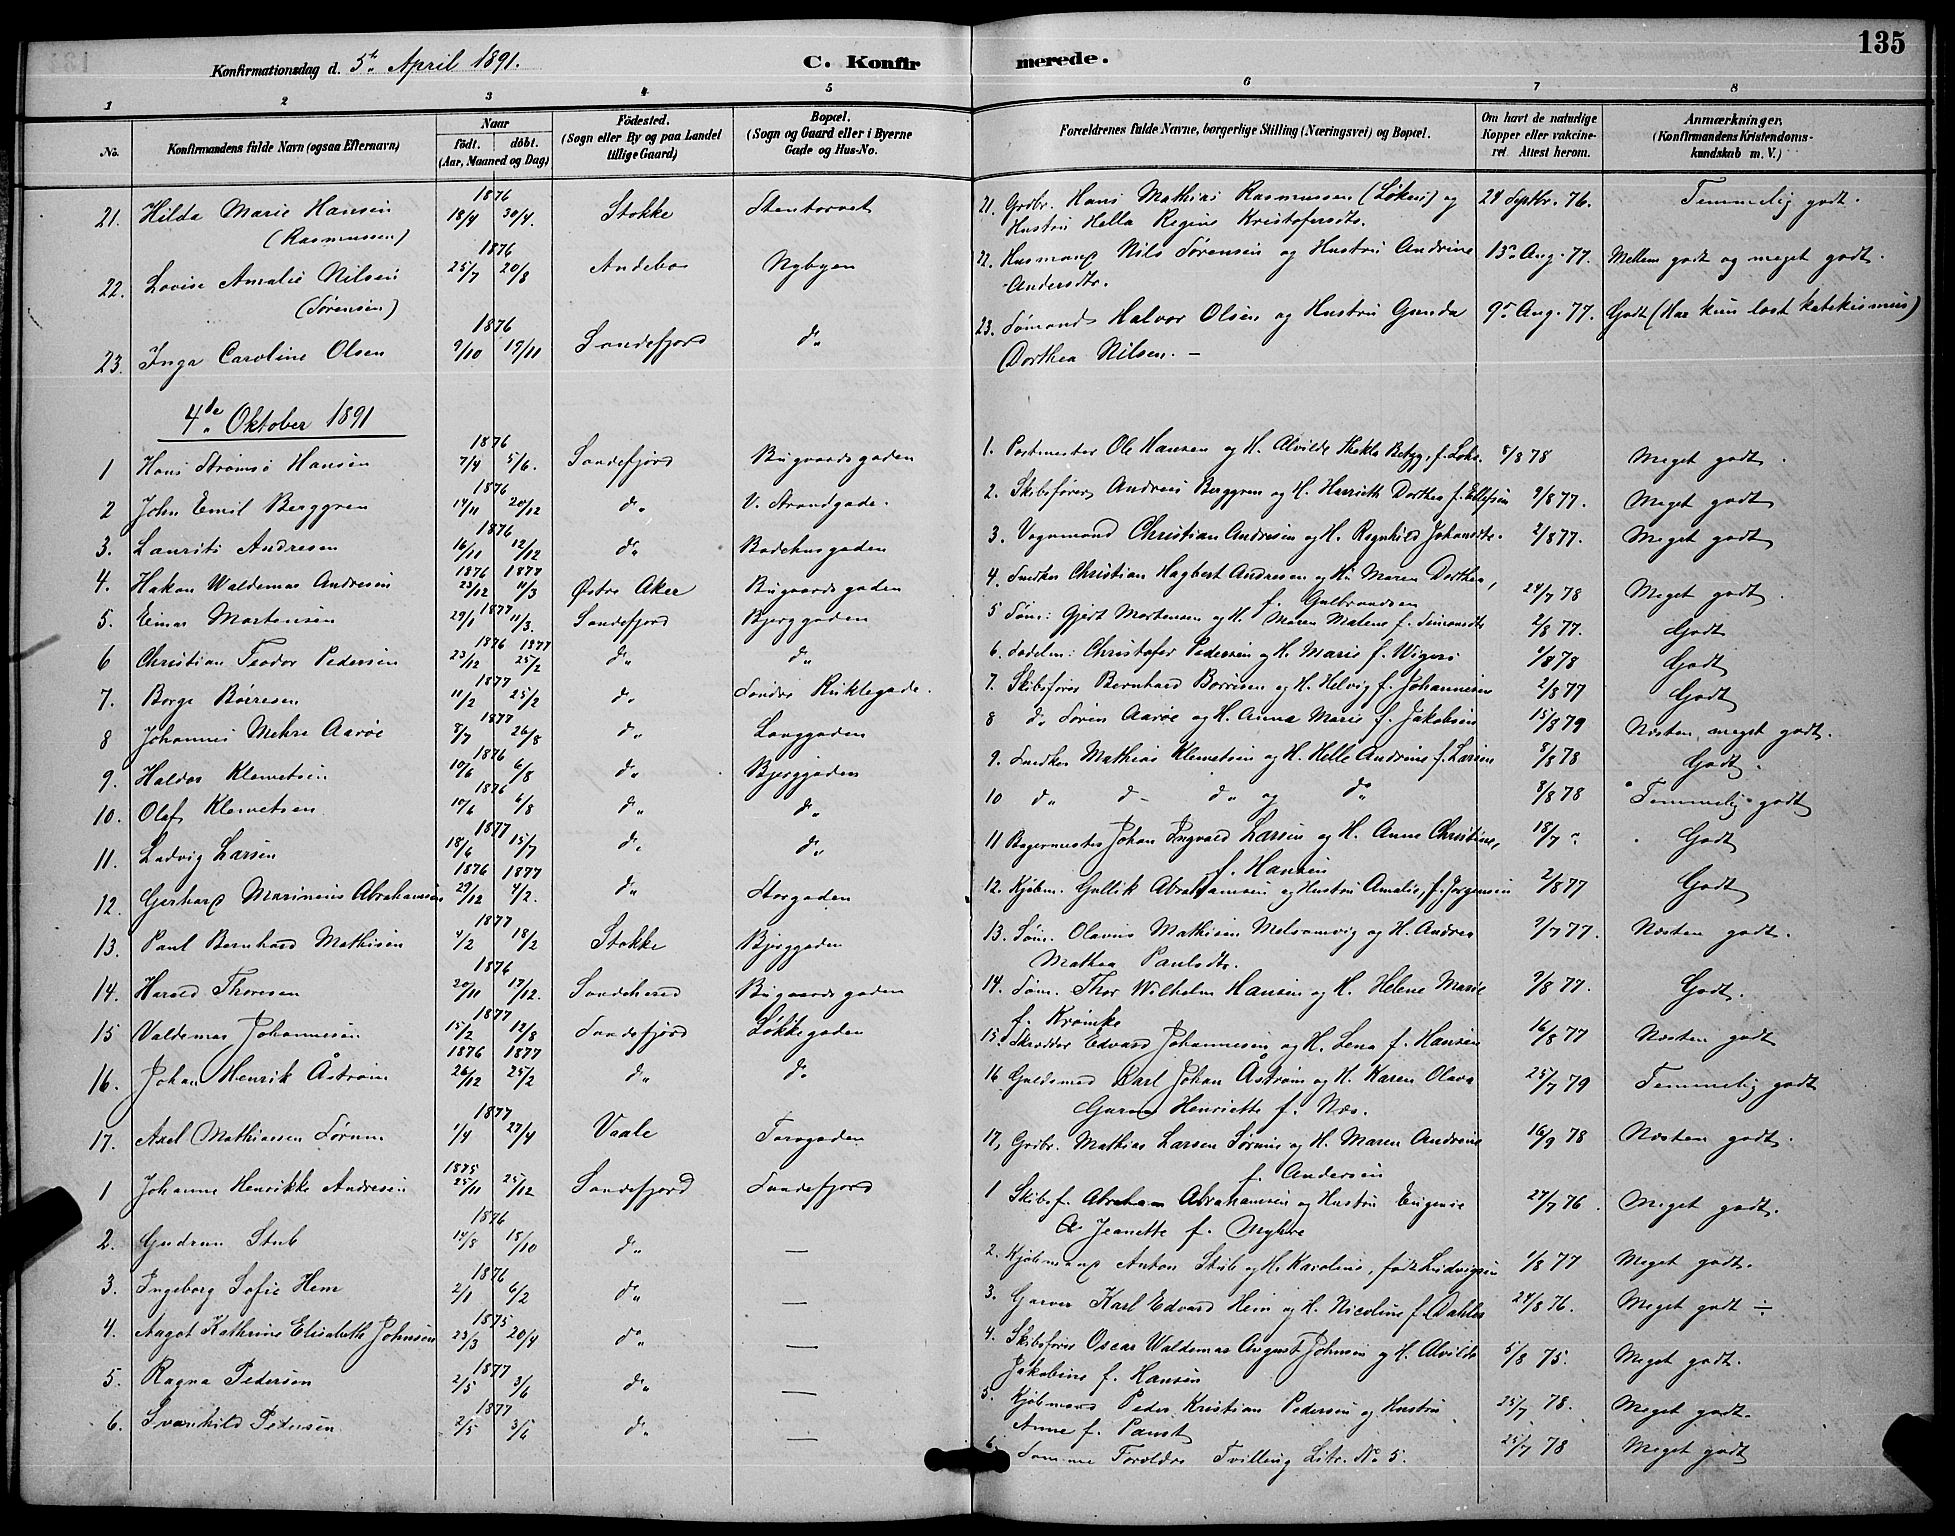 135
Konfirmationsdag d. 5te April 1891.
C. Konfirmerede.
1 2 3 4 5 6 7 8
No.
Konfirmandens fulde Navn (ogsaa Efternavn)
Naar
født. døbt.
(Aar, Maaned og Dag)
Fødested.
(Sogn eller By og paa Landet
tillige Gaard)
Bopæl.
(Sogn og Gaard eller i Byerne
Gade og Hus-No.
Forældrenes fulde Navne, borgerlige Stilling (Næringsvei) og Bopæl.
Om havt de naturlige
Kopper eller vakcineret
Attest herom.
Anmærkninger.
(Konfirmandens Kristendoms-
kundskab m. V.)
21. Hilda Marie Hansen 1876 18/4 30/4. Stokke Stentorvet 21. Grdbr. Hans Mathias Rasmussen (Løken) og 24 Septbr. 76. Temmelig godt.
(Rasmussen) Hustru Hella Regine Kristofersdtr.
22. Lovise Amalie Nilsen 1876 25/7 20/8 Andebo Nybyen 22. Husmand Nils Sørensen og Hustru Andrine 13de Aug. 77. Mellem godt og meget godt.
(Sørensen) Andersdtr.
23. Inga Caroline Olsen 1876 9/10 19/11 Sandefjord do 23. Sømand Halvor Olsen og Hustru Gunda 9de Aug. 77. Godt (Har kun læst katekismus)
Dorthea Nilsen. –
4de Oktober 1891
1 Hans Strømsø Hansen 1876 7/4 5/6. Sandefjord Bugaardsgaden 1. Postmester Ole Hansen og H. Alvilde Thekla 8/8 78 Meget godt.
2 John Emil Berggren 1876 14/11 20/12 do V. Strandgade. 2. Skibsfører Andreas Berggren og H. Henriette Dorthea f. Ellefsen 9/8 77. Meget godt
3. Laurits Andresen 1876 16/11 12/12 do Badehusgaden 3. Vognmand Christian Andresen og H. Ragnhild Johansdtr. 2/8 77. Meget godt
4. Hakon Waldemar Andresen 1876 23/12 1877 11/3 Østre Aker Bugaardsgaden 4. Snedker Christian Hagbert Andresen og H. Maren Dorthea, 24/7 78 Meget godt.
f. Gulbrandsen
5. Einar Mortensen 1877 29/1 11/3. Sandefjord Bjerggaden 5 Søm: Gjert Mortensen og H. Maren Malene f. Simonsdtr 2/8 77. Godt
6 Christian Teodor Pedersen 1876 23/12 1877 25/2 do do 6. Sadelm: Christofer Pedersen og H. Marie f. Wigers 1/8 78 Godt
7. Borge Børresen 1877 11/2 25/2 do Søndre 7. Skibsfører Bernhard Børresen og H. Helvig f. Johannesen 2/8 77 Godt
8 Johannes Mehre Aarøe 1877 8/7 26/8 do Langgaden 8 do Søren Aarøe og H. Anna Marie f. Jakobsen 15/8 79 Næsten meget godt.
9. Haldor Klemetsen 1876 10/6 6/8 do Bjerggaden 9. Snedker Mathias Klemetsen og H. Helle Andrine f. Larsen 8/8 78 Godt.
10. Olaf Klemetsen 1876 10/6 6/8 do do 10 do do do og do 8/8 78 Temmelig godt
11. Ludvig Larsen 1877 18/6 15/7 do do 11 Bagermester Johan Ingvard Larsen og H. Anne Christine, 18/7 Godt
f. Hansen
12. Gerhard Marinius Abrahamsen 1876 29/12 1877 4/2. do Storgaden 12. Kjøbm. Gullik Abrahamsen og Hustru Amalie, f. Jørgensen 2/8 77 Godt
13. Paul Bernhard Mathisen 1877 4/2 18/2 Stokke Bjerggaden 13. Søm. Olavus Mathisen Melsomvig og H. Andrea 2/7 77. Næsten godt.
Mathea Paulsdtr.
14. Harald Thoresen 1876 20/11 17/12. Sandeherred Bugaardsgaden 14. Søm. Thor Wilhelm Hansen og H. Helene Marie 9/8 77. Godt.
f. Krømke
15 Valdemar Johannesen 1877 15/2 12/8 Sandefjord Løkkegaden 15. Skrædder Edvard Johannesen og H. Lena f. Hansen 16/8 77 Næsten godt
16. Johan Henrik Åstrøm 1876 26/12 1877 25/2 do do 16 Guldsmed Karl Johan Åstrøm og H. Karen Olava 25/7 79 Temmelig godt
Henriette f. Næs.
17. Axel Mathiesen Sørum 1877 1/4 27/4 Vaale Torvgaden 17, Grdbr. Mathias Larsen Sørum og H. Maren Andrine 16/9 78 Næsten godt.
f. Andersen
1 Johanne Henrikke Andresen 1875 25/11 25/12 Sandefjord Sandefjord 1 Skibsf. Abraham Abrahamsen og Hustru Eugenie 27/7 76. Meget godt.
Jeanette f. Myhre
2. Gudrun Stub 1876 14/8 15/10 do — 2. Kjøbmand Anton Stub og H. Karoline, født Ludvigsen 1/8 77 Meget godt.
3. Ingeborg Sofie Hem 1876 2/1 6/2 do — 3. Garver Karl Edvard Hem og H. Nicoline f. Dahler 24/8 76. Meget godt ÷
4. Aagot Kathrine Elisabeth Johnsen 1875 23/3 20/4 do — 4. Skibsfører Oscar Waldemar August Johnsen og H. Alvilde 5/8 75. Meget godt.
Jakobine f. Hansen
5. Ragna Pedersen 1877 2/5 3/6 do — 5. Kjøbmand Peder Kristian Pedersen og Hustru 25/7 78. Meget godt.
Anne f. Paust
6. Svanhild Pedersen 1877 2/5 3/6 do — 6. Samme Forældre Tvilling Litr. No 5. 25/7 78 Meget godt